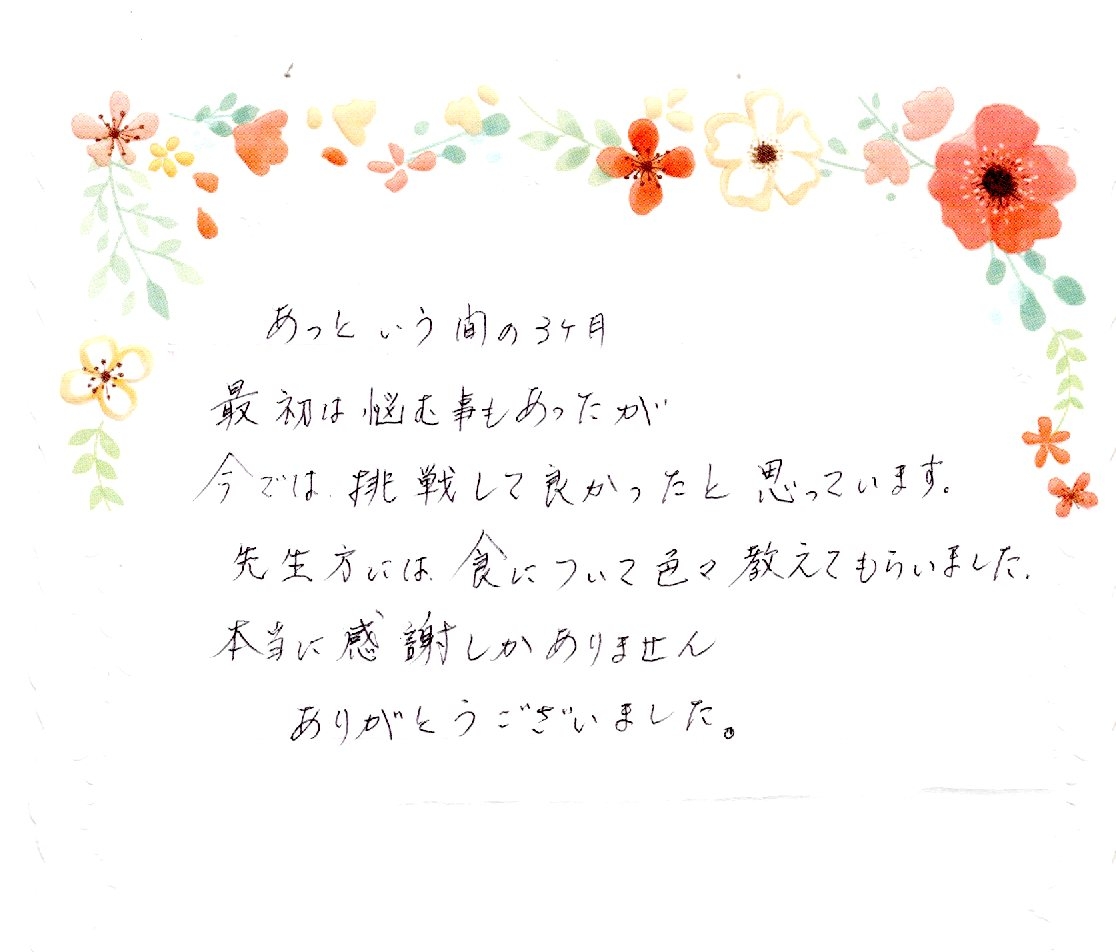 あっという間の3ヶ月
最初は悩む事もあったが
今では、挑戦して良かったと思っています。
先生方には、食について色々教えてもらいました、
本当に感謝しかありません
ありがとうございました。